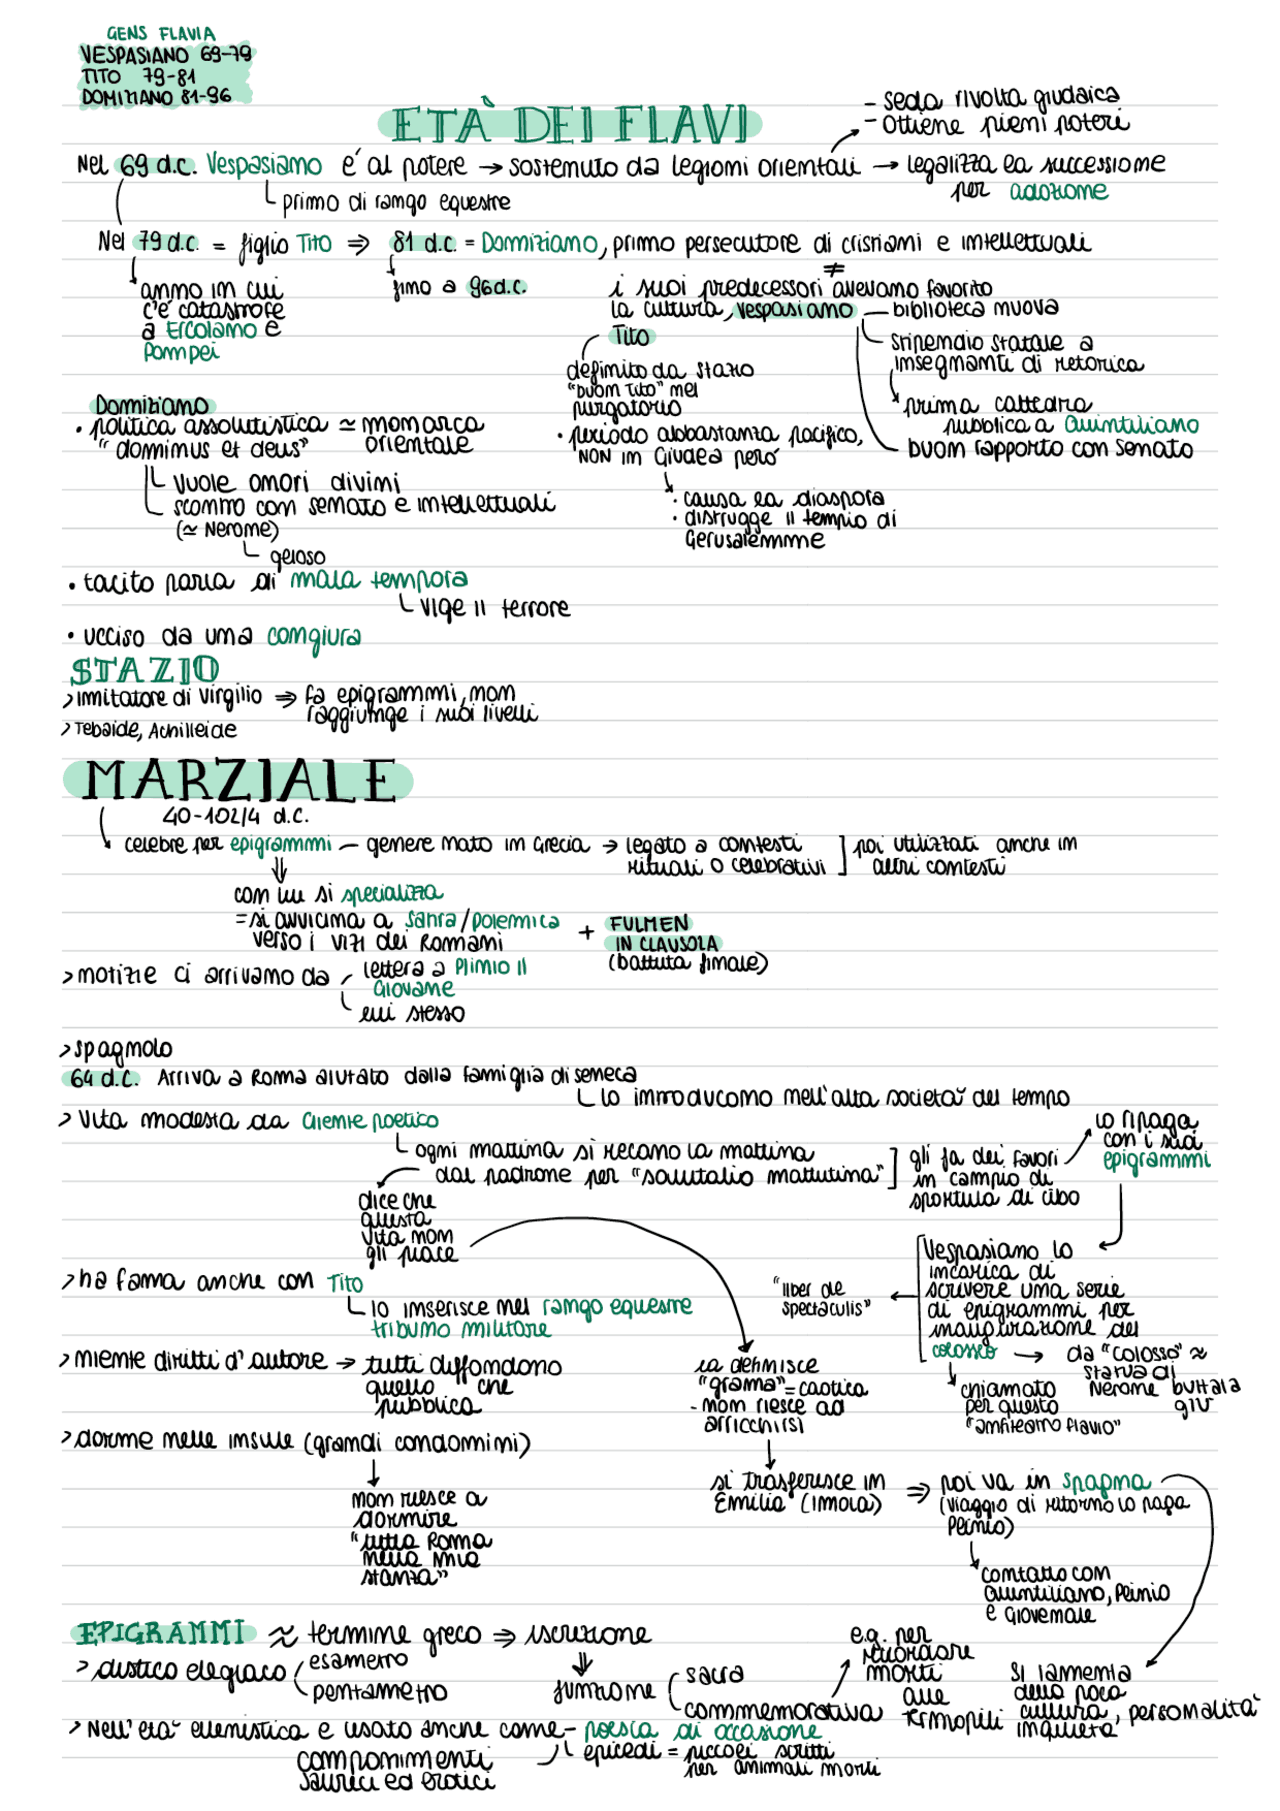 GENS FLAVIA
VESPASIANO 69-79
TITO 79-81
DOMIZIANO 81-96
ETÀ DEI FLAVI
- seda rivolta giudaica
- ottiene pieni poteri
Nel 69 d.c. Vespasiano é al potere → sostenuto da legioni orientali → legalizza la successione
per adozione
primo di rango equestre
Nel 79 d.c. = figlio Tito ⇒ 81 d.c. = Domiziano, primo persecutore di cristiani e intellettuali
anno in cui
c'é catastrofe
a Ercolano e
Pompei
fino a 96 d.c.
≠
i suoi predecessori avevano favorito
la cultura, Vespasiano — biblioteca nuova
stipendio statale a
insegnanti di retorica
prima cattedra
pubblica a Quintiliano
buon rapporto con senato
Tito
definito da stazio
"buon Tito" nel
purgatorio
• periodo abbastanza pacifico,
NON in Giudea peró
• causa la diaspora
• distrugge il tempio di
Gerusalemme
Domiziano
• politica assolutistica ≃ monarca
orientale
"dominus et deus"
vuole onori divini
scontro con senato e intellettuali
(≃ Nerone)
geloso
• tacito parla di mala tempora
vige il terrore
• ucciso da una congiura
STAZIO
> imitatore di virgilio ⇒ fa epigrammi, non
raggiunge i suoi livelli
> Tebaide, Achilleide
MARZIALE
40-102/4 d.c.
celebre per epigrammi — genere nato in Grecia → legato a contesti
rituali o celebrativi ] poi utilizzati anche in
altri contesti
⇓
con lui si specializza
= si avvicina a satira/polemica
verso i vizi dei Romani
+ FULMEN
IN CLAUSOLA
(battuta finale)
> notizie ci arrivano da lettera a Plinio il
Giovane
lui stesso
> spagnolo
64 d.c. Arriva a Roma aiutato dalla famiglia di seneca
lo introducono nell'alta societa' del tempo
> Vita modesta da cliente poetico
ogni mattina si recano la mattina
dal padrone per "salutatio mattutina" ] gli fa dei favori
in campio di
sportula di cibo
lo ripaga
con i suoi
epigrammi
dice che
questa
vita non
gli piace
Vespasiano lo
incarica di
scrivere una serie
di epigrammi per
inaugurazione del
colosseo → da "colosso" ≈
statua di
Nerone buttata
giu'
"liber de
spectaculis"
chiamato
per questo
"anfiteatro flavio"
> ha fama anche con Tito
lo inserisce nel rango equestre
tribuno militare
> niente diritti d'autore → tutti diffondono
quello che
pubblica
la definisce
"grama" = caotica
- non riesce ad
arricchirsi
> dorme nelle insule (grandi condomini)
non riesce a
dormire
"tutta Roma
nella mia
stanza"
si trasferisce in
Emilia (Imola) ⇒ poi va in spagna
(viaggio di ritorno lo paga
Plinio)
contatto con
Quintiliano, Plinio
e Giovenale
si lamenta
della poca
cultura, personalità
inquieta
EPIGRAMMI ≈ termine greco ⇒ iscrizione
> distico elegiaco esametro
pentametro
⇓
funzione
sacra
commemorativa
e.g. per
ricordare
morti
alle
Termopili
> Nell'eta' ellenistica e usato anche come - poesia di occasione
epicedi = piccoli scritti
per animali morti
componimenti
satirici ed erotici